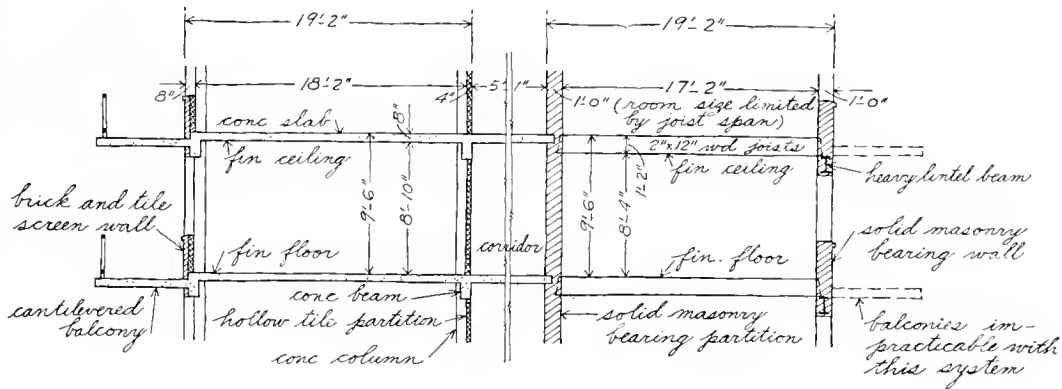 19'-2"
19'-2"
18'-2"
5'-1"
17'-2"
8"
4"
1'-0" (room size limited
by joist span)
1'-0"
conc slab
8"
2"x12" wd joists
fin ceiling
fin ceiling
1'-2"
heavy lintel beam
brick and tile
screen wall
9'-6"
8'-10"
9'-6"
8'-4"
solid masonry
bearing wall
corridor
fin floor
fin. floor
cantilevered
balcony
conc beam
hollow tile partition
conc column
solid masonry
bearing partition
balconies im-
practicable with
this system